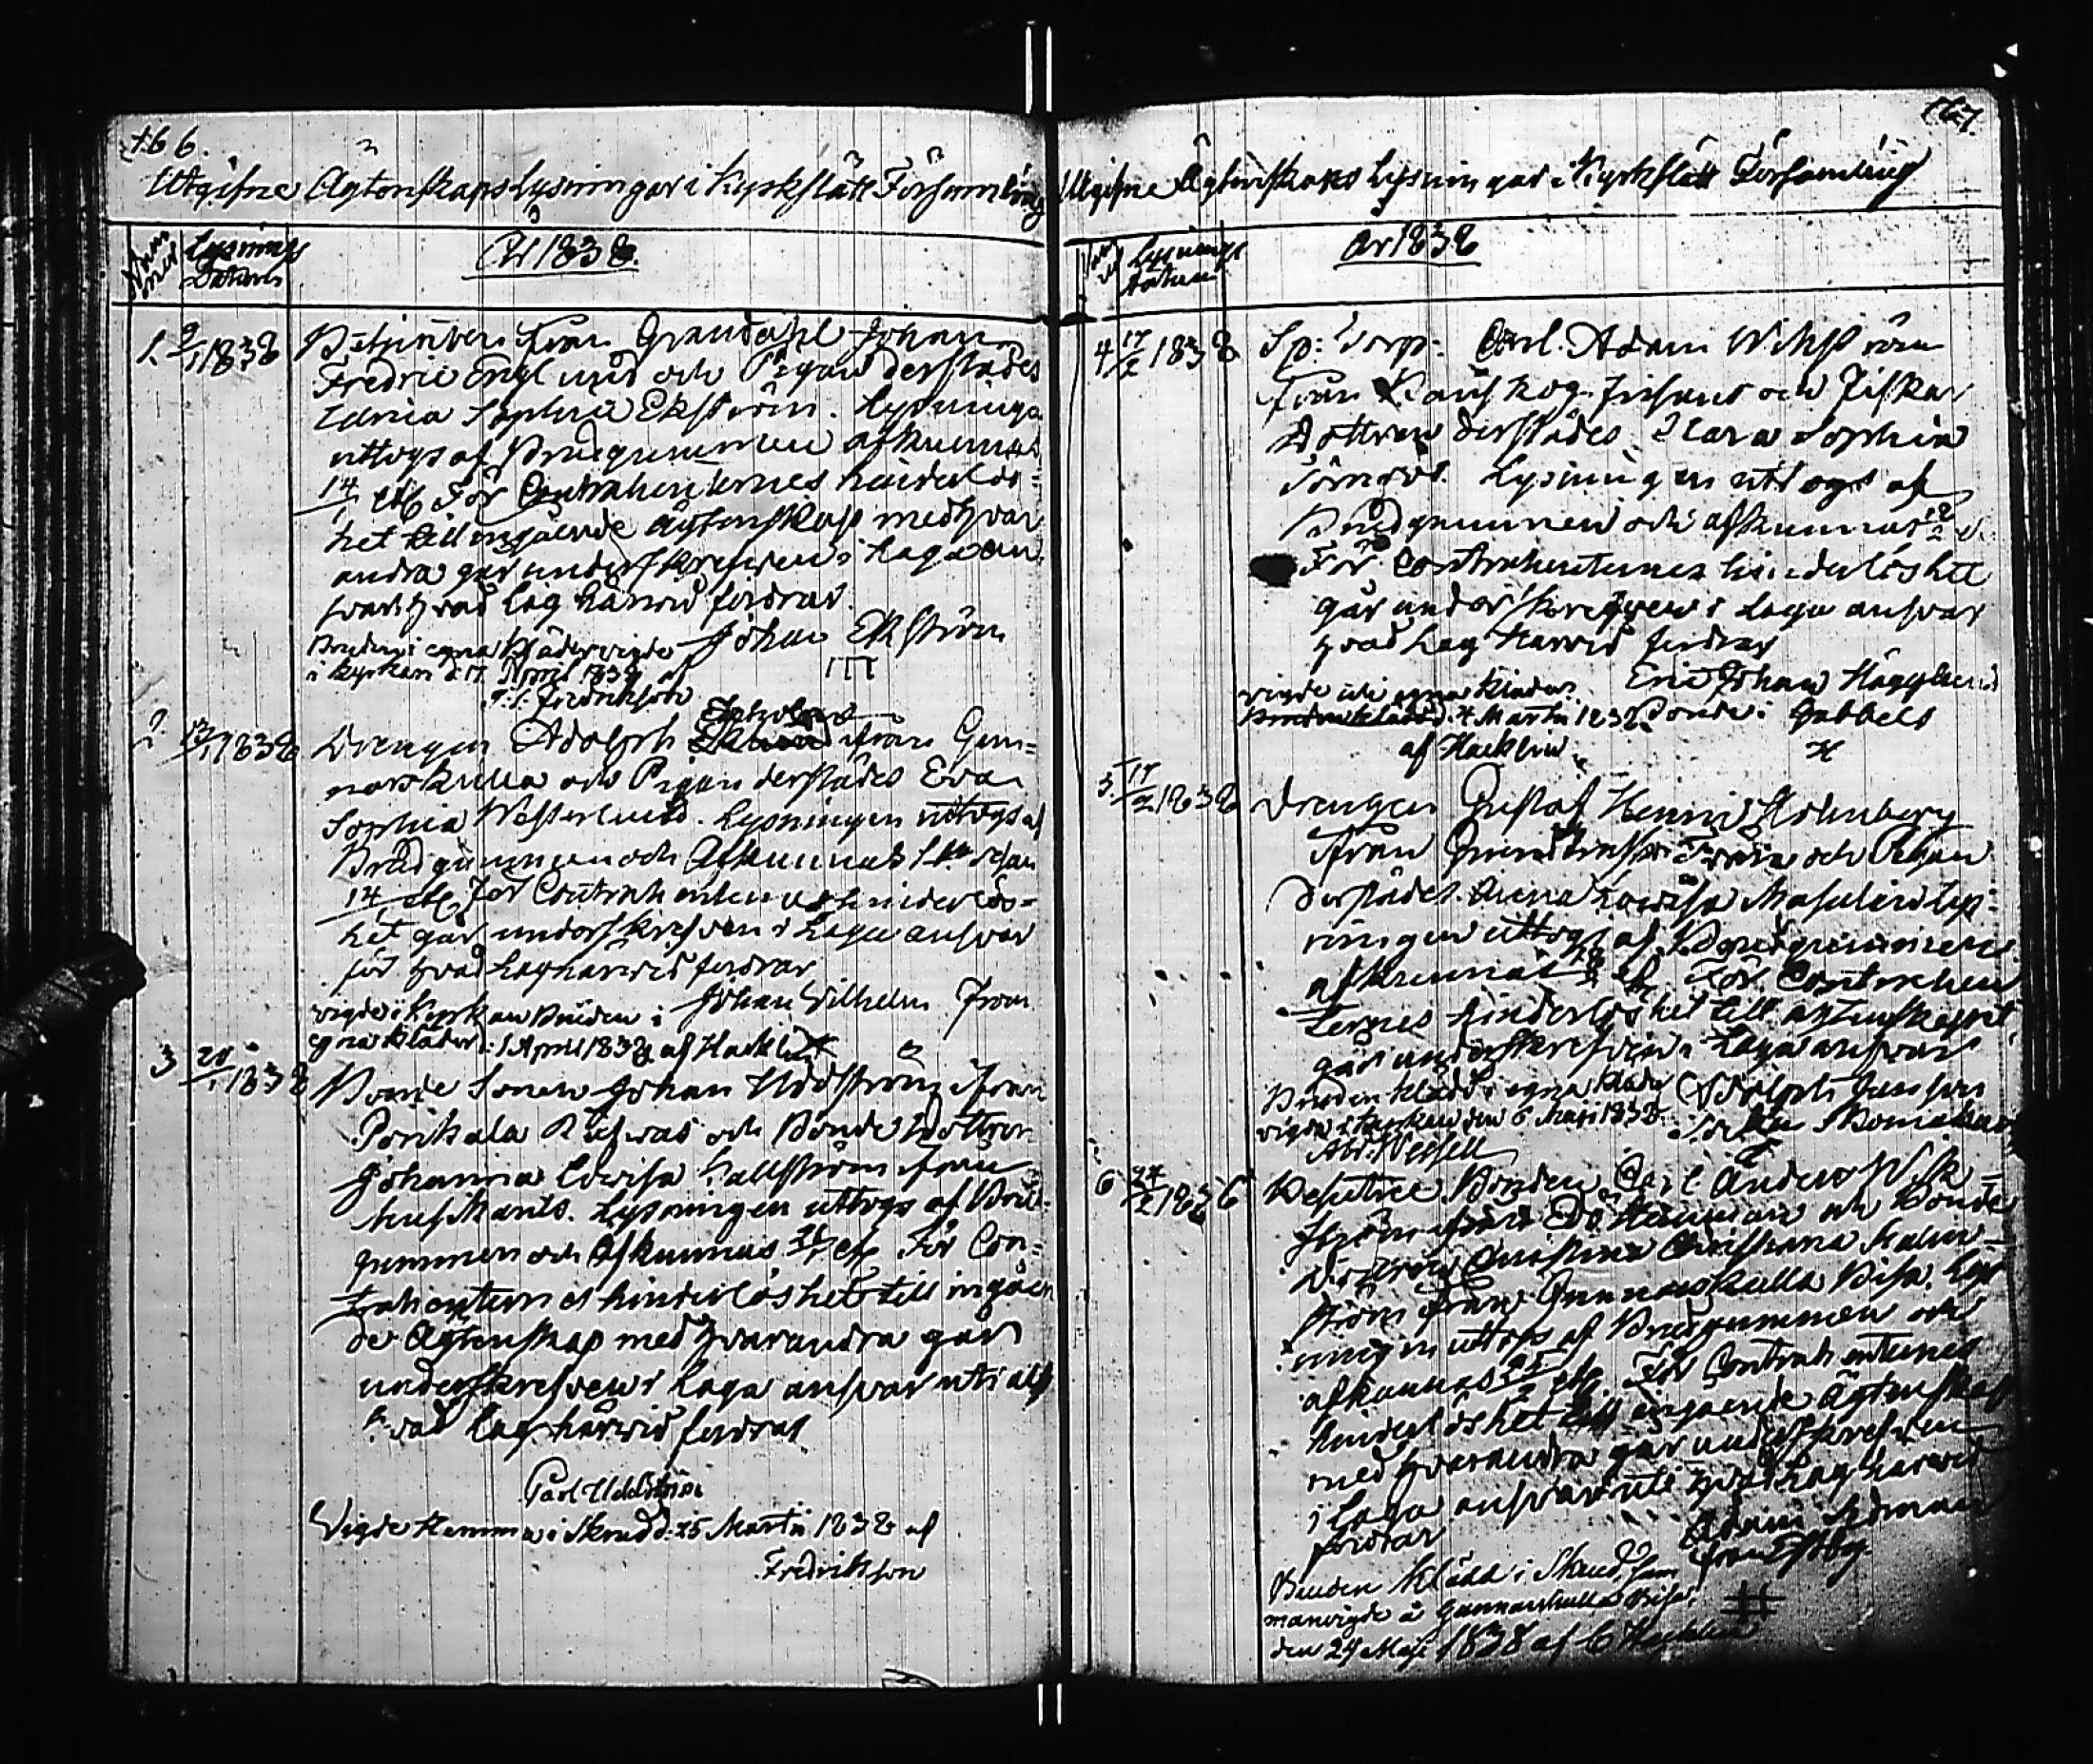 166.
Utgifne Ägtenskaps Lysningar i Kyrkslätt Församling
Num
mer
Lysnings
Datum
År 1838.
1. 9/1 1838
från Grundahl Johan
Fredric Englund och Pigan derstädes
Maria Sophia Ekström. Lysningen
uttogs af Brudgummen afkunnas
14/1 För Contrahenternes hinderlös=
het till ingående ägtenskap med hvar
andra går underskrefven i Laga an
svar hvad Lag härvid fordrar.
Bruden i egna kläder vigde Johan Ekström
i Kyrkan d. 17 April 1838 af
Fredrikson
2. 13/1 1838
Drengen Adolph från Gun=
narskulla och Pigan derstädes Eva
Sophia Westerlund. Lysningen uttogs af
Brudgummen och Afkunnas 1:sta
14 För Contrahenternes hinderlös=
het går underskrefven i Laga ansvar
för hvad Lag härvid fordrar
vigde i Kyrkan Bruden i Johan Wilhelm
egna kläder d. 1 April 1838 af Hacklin
3 20/1 1838
Bonde Sonen Johan Uddström från
Porkala och Bonde Dottren
Johanna Lovisa Hallström från
Lysningen uttogs af Brud=
gummen och Afkunnas 21/1 För Con=
trahenternes hinderlöshet till ingåen
de Ägtenskap med hvarandra går
underskrefven i Laga ansvar uti allt
hvad Lag härvid fordrar
Carl Uddström
Vigde hemma i Skrud d. 25 Martii 1838 af
Fredrikson
167.
Utgifne Ägtenskaps Lysningar i Kyrkslätt Församling
Lysnings
Datum
År 1838
4 17/2 1838
Sp: Torp: Carl Adam Wikström
från och Fiskar
Dottren derstädes Clara Sophia
Törnqvist. Lysningen uttogs af
Brudgummen och afkunnas 18/2
För Contrahenternes hinderlöshet
går underskrefven i Laga ansvar
hvad Lag härvid fordrar
Eric Johan Hägglund
vigde uti egna kläder
d. 4 Martii 1838 Bonde i Gobbels
af Hacklin
5 17/2 1838
Drengen Gustaf Henric Holmberg
från och Pigan
derstädes Anna Lovisa Masalin Lys=
ningen uttogs af Brudgummen
afkunnas 18/2 För Contrahen
ternes hinderlöshet till ägtenskapet
går underskrefven i Laga ansvar
Bruden klädd i egna kläder Adolph
vigde i Kyrkan den 6 Maji 1838
Abr. Wessell
6 24/2 1838
Bonden Carl Anders Wik=
ström från och Bonde
Dottren Christina Malm=
ström från Gunnarskulla Bisa. Lys
ningen uttogs af Brudgummen och
afkunnas 25/2 För Contrahenternes
hinderlöshet till ingående Ägtenskap
med hvarandra går underskrefven
i Laga ansvar uti hvad Lag härvid
fordrar Adam
från Estby
Bruden klädd i Skrud, sam
manvigde å Gunnarskulla Bisa,
den 24 Maji 1838 af C Hacklin